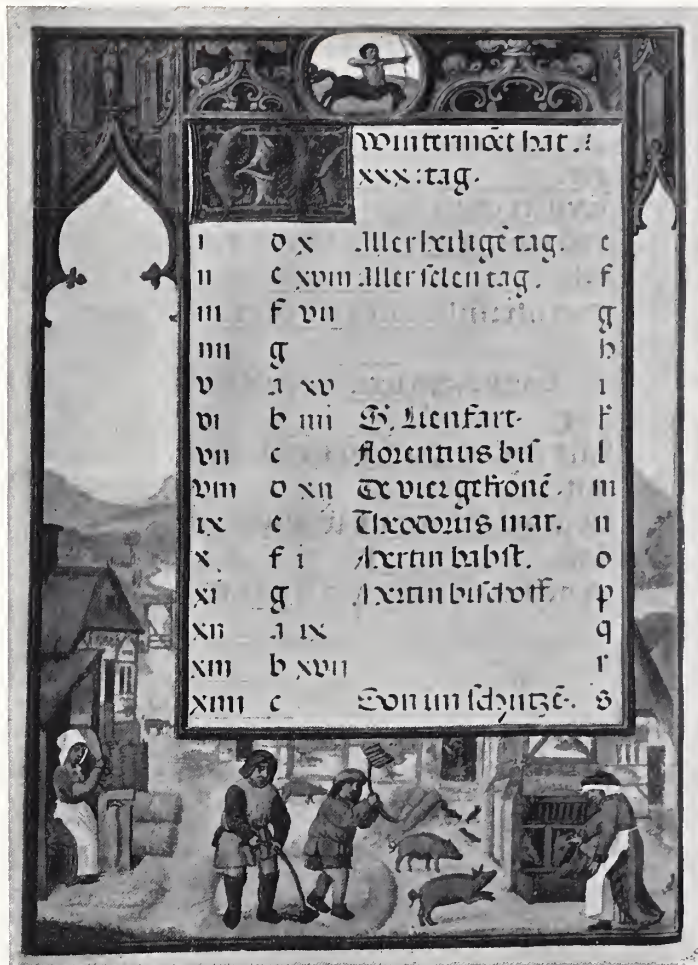 Wintermoẽt hat.
xxx: tag.
i d x Aller heiligẽ tag. e
ii e xviii Aller selen tag. f
iii f vii g
iiii g h
v a xv i
vi b iiii S. Lienhart. k
vii c florentius bis l
viii d xii De vier gekronẽ. m
ix e Theodorus mar. n
x f i Mertin babst. o
xi g Mertin bischoff. p
xii a ix q
xiii b xvii r
xiiii c schutzẽ. s